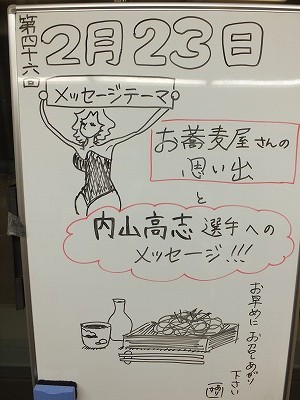 第四十六回
2月23日
メッセージテーマ
お蕎麦屋さんの
思い出
と
内山高志選手への
メッセージ!!!
お早めに
お召しあがり
下さい